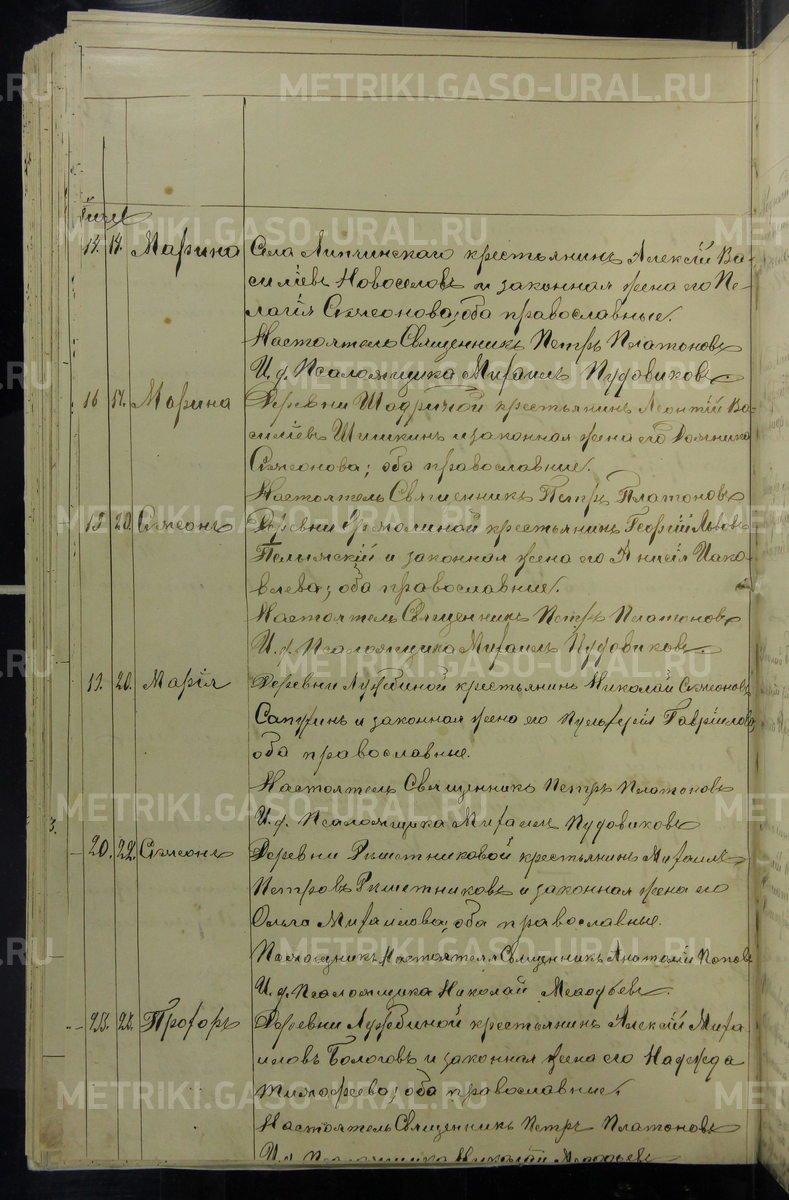 Іюля
14. 14. Марина Села Липчинскаго крестьянинъ Алексій Ва-
силіевъ Новоселовъ и законная жена его Пе-
лагія Симеонова; оба православные.
Настоятель Священникъ Петръ Платоновъ
И. д. Псаломщика Михаилъ Пудовиковъ
16 17. Марина Деревни Шадриной крестьянинъ Леонтій Ва-
силіевъ Шишкинъ и законная жена его Домника
Симеонова; оба православные.
Настоятель Священникъ Петръ Платоновъ
20. Симеонъ Деревни крестьянинъ Георгій Львовъ
Пелымскій и законная жена его Анисія Иако-
влева; оба православные.
Настоятель Священникъ Петръ Платоновъ
И. д. Псаломщика Михаилъ Пудовиковъ.
19. 20. Марія Деревни Лужбиной крестьянинъ Николай Симеоновъ
Сапугинъ и законная жена его Гавріилова
оба православные.
Настоятель Священникъ Петръ Платоновъ
И. д. Псаломщика Михаилъ Пудовиковъ
3.
20. 22. Симеонъ Деревни Рѣшетниковой крестьянинъ Михаилъ
Петровъ Рѣшетниковъ и законная жена его
Ольга Михаилова; оба православные.
Помощникъ Настоятеля Священникъ Анатолій Поповъ
И. д. Псаломщика Николай Меѳодьевъ.
25. Прохоръ Деревни Лужбиной крестьянинъ Алексій Миха
иловъ Бологовъ и законная жена его Надежда
Тимофеева; оба православные.
Настоятель Священникъ Петръ Платоновъ
И. д. Псаломщика Николай Меѳодьевъ
METRIKI.GASO-URAL.RU